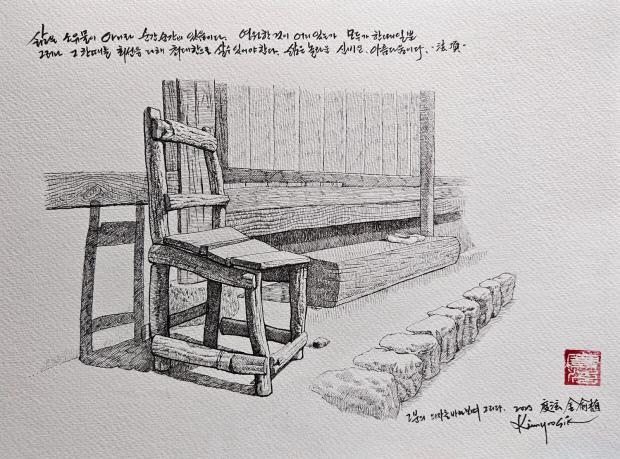 삶은 소유물이 아니라 순간순간의 있음이다. 영원한 것이 어디 있는가 모두가 한때일 뿐
그러나 그 한때를 최선을 다해 최대한으로 살 수 있어야 한다. 삶은 놀라운 신비요, 아름다움이다. ·法頂·
그분의 의자를 바라보며 그리다. 金